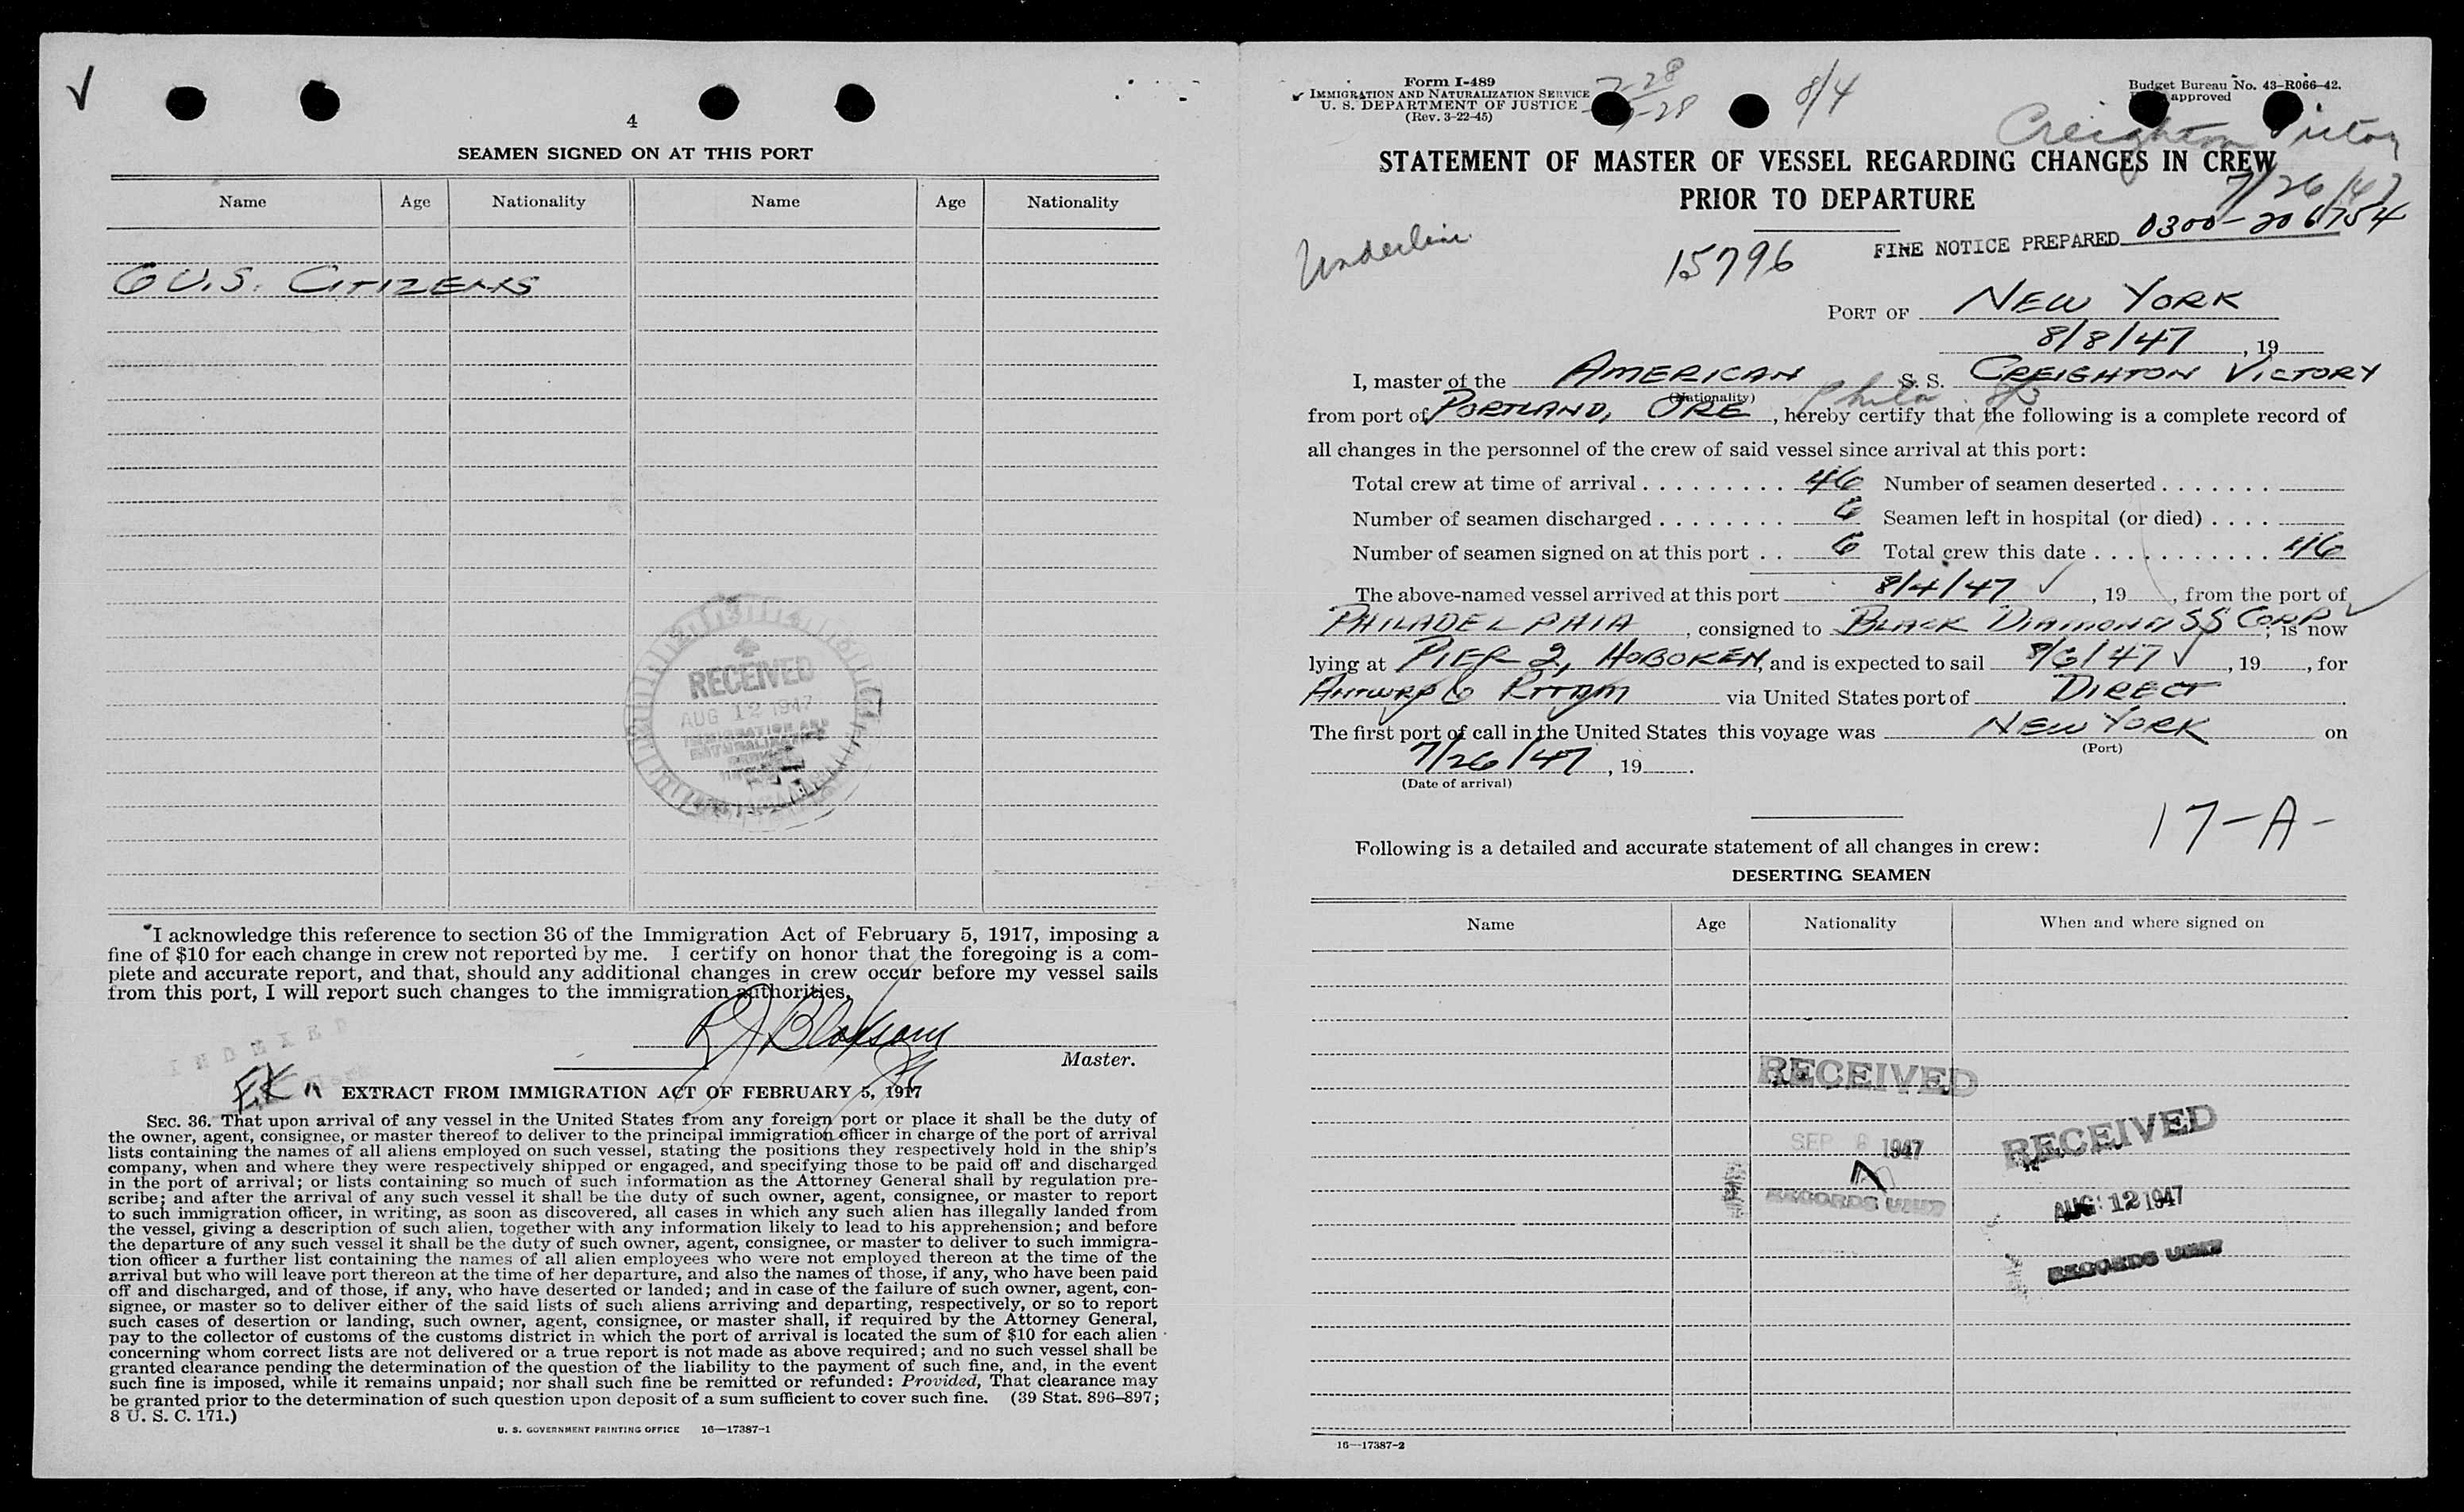 4
SEAMEN SIGNED ON AT THIS PORT
Name Age Nationality Name Age Nationality
6 U.S. CITIZENS
RECEIVED
AUG 12 1947
IMMIGRATION AND
NATURALIZATION
I acknowledge this reference to section 36 of the Immigration Act of February 5, 1917, imposing a
fine of $10 for each change in crew not reported by me. I certify on honor that the foregoing is a com-
plete and accurate report, and that, should any additional changes in crew occur before my vessel sails
from this port, I will report such changes to the immigration authorities.
Master.
INDEXED
EK
EXTRACT FROM IMMIGRATION ACT OF FEBRUARY 5, 1917
SEC. 36. That upon arrival of any vessel in the United States from any foreign port or place it shall be the duty of
the owner, agent, consignee, or master thereof to deliver to the principal immigration officer in charge of the port of arrival
lists containing the names of all aliens employed on such vessel, stating the positions they respectively hold in the ship's
company, when and where they were respectively shipped or engaged, and specifying those to be paid off and discharged
in the port of arrival; or lists containing so much of such information as the Attorney General shall by regulation pre-
scribe; and after the arrival of any such vessel it shall be the duty of such owner, agent, consignee, or master to report
to such immigration officer, in writing, as soon as discovered, all cases in which any such alien has illegally landed from
the vessel, giving a description of such alien, together with any information likely to lead to his apprehension; and before
the departure of any such vessel it shall be the duty of such owner, agent, consignee, or master to deliver to such immigra-
tion officer a further list containing the names of all alien employees who were not employed thereon at the time of the
arrival but who will leave port thereon at the time of her departure, and also the names of those, if any, who have been paid
off and discharged, and of those, if any, who have deserted or landed; and in case of the failure of such owner, agent, con-
signee, or master so to deliver either of the said lists of such aliens arriving and departing, respectively, or so to report
such cases of desertion or landing, such owner, agent, consignee, or master shall, if required by the Attorney General,
pay to the collector of customs of the customs district in which the port of arrival is located the sum of $10 for each alien
concerning whom correct lists are not delivered or a true report is not made as above required; and no such vessel shall be
granted clearance pending the determination of the question of the liability to the payment of such fine, and, in the event
such fine is imposed, while it remains unpaid; nor shall such fine be remitted or refunded: Provided, That clearance may
be granted prior to the determination of such question upon deposit of a sum sufficient to cover such fine. (39 Stat. 896–897;
8 U. S. C. 171.)
U. S. GOVERNMENT PRINTING OFFICE 16—17387-1
Form I-489
IMMIGRATION AND NATURALIZATION SERVICE
U. S. DEPARTMENT OF JUSTICE
(Rev. 3-22-45)
8/4
Budget Bureau No. 43-R066-42.
approved
Creighton Victory
STATEMENT OF MASTER OF VESSEL REGARDING CHANGES IN CREW
PRIOR TO DEPARTURE
7/26/47
Underline
15796
FINE NOTICE PREPARED 0300-206754
PORT OF NEW YORK
8/8/47, 19
I, master of the AMERICAN S. S. CREIGHTON VICTORY
(Nationality)
Phila. 8/3
from port of PORTLAND, ORE, hereby certify that the following is a complete record of
all changes in the personnel of the crew of said vessel since arrival at this port:
Total crew at time of arrival 46 Number of seamen deserted
Number of seamen discharged 6 Seamen left in hospital (or died)
Number of seamen signed on at this port 6 Total crew this date 46
The above-named vessel arrived at this port 8/4/47, 19, from the port of
PHILADELPHIA, consigned to BLACK DIAMOND SS CORP; is now
lying at PIER 2, HOBOKEN, and is expected to sail 8/6/47, 19, for
via United States port of DIRECT
The first port of call in the United States this voyage was NEW YORK on
(Port)
7/26/47, 19.
(Date of arrival)
17-A-
Following is a detailed and accurate statement of all changes in crew:
DESERTING SEAMEN
Name Age Nationality When and where signed on
RECEIVED
SEP 8 1947
RECORDS UNIT
RECEIVED
AUG 12 1947
RECORDS UNIT
16—17387-2